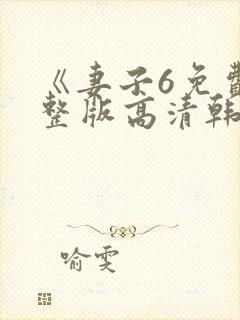 《妻子6免费
整版高清韩
喻雯